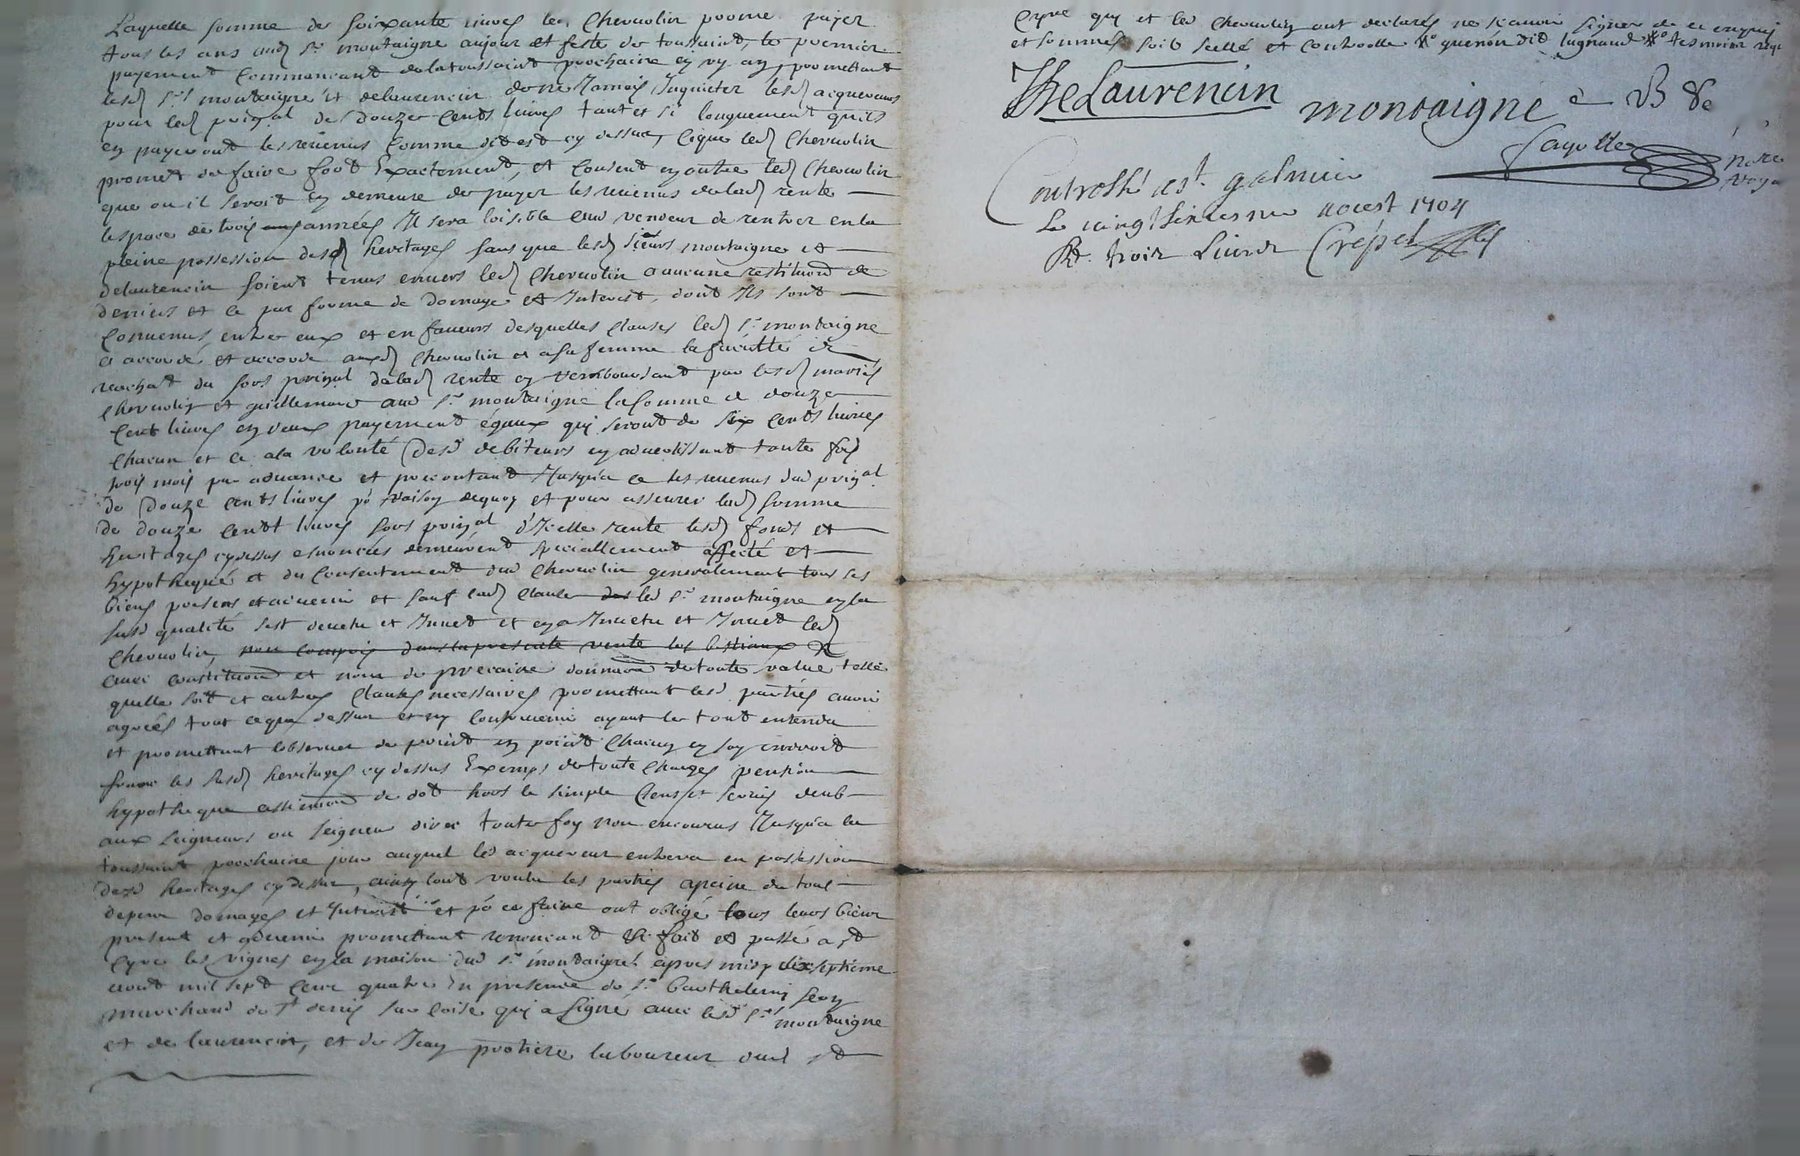 Laquelle somme de soixante livres led Chevrolin promet payer
tous les ans aud sr montaigne au jour et feste de toussaint, le premier
payement Commencant de la toussaint prochaine en un an, promettant
lesd srs montaigne et delaurencin de ne Jamais Inquieter lesd acquereurs
pour led prinal de douze Cents livres tant et si longuement quils
en payeront les revenus Comme dit est cy dessus, Ceque led Chevrolin
promet de faire fort Exactement, et Consent en outre led Chevrolin
que ou il seroit en demeure de payer les revenus de lad rente
lespace de trois années Il sera loisible aud vendeur de rentrer en la
pleine possession desd heritages sans que lesd sieurs montaigne et
delaurencin soient tenus envers led Chevrolin a aucune restituon de
deniers et ce par forme de domage et Interest, dont Ils sont
Convenus entre eux et en faveurs desquelles Clauses led sr montaigne
a accordé et accorde auxd Chevrolin et a sa femme la faculté de
reachat du sort prinal de lad rente en remboursant par lesd mariés
Chevrolin et guillermand aud sr montaigne la somme de douze
Cent livres en deux payement égaux qui seront de six Cents livres
Chacun et ce a la volonté desd debiteurs en advertissant toute fois
trois mois par advance et precontant Jusqua ce les revenus dud prinal
de douze Cents livres po raison dequoy et pour asseurer lad somme
de douze Cent livres sort prinal d'Icelle rente lesd fonds et
heritages cy dessus enoncées demeurent speciallement affecté et
hypothequé et du Consentement dud Chevrolin generalement tous ses
biens presens et advenir et sauf lad Clause led sr montaigne en la
susd qualité sest devetu et et en a Investu et led
Chevrolin, non compris dans la presente vente les bestiaux
avec constituon et nom de precaire donnaon de toute value telle
quelle soit et autres Clauses necessaires promettant lesd parties avoir
agréés tout ce que dessus et ny Contrevenir ayant le tout entendu
et promettant lobserver de point en point Chacun en soy endroit
les susd heritages cy dessus Exemps de toute Charges pension
hypotheque de dot hors le simple Cens et servis deub
aux seigneurs ou seigneur direct toute foy non encourus Jusqua la
toussaint prochaine jour auquel led acquereur entrera en possession
desd heritages cy dessus, ainsy lont voulu les parties a peine de tous
depens domages et Interist et po ce faire ont obligé tous leurs biens
present et advenir promettant renoncant &c fait et passé a st
Cyre les vignes en la maison dud sr montaigne apres midy dix septieme
aoust mil sept Cent quatre En presence de sr Barthelemy
marchand de st denis sur Coise qui a signé avec lesd srs montaigne
et de laurencin, et de Jean protiere laboureur dud st
Cyre qui et led Chevrolin ont declarés ne scavoir signer de ce enquis
et sommés soit scellé et Controlle
DeLaurencin montaigne
Jayolle
Controllé a st galmier
Le vingt aoust 1704
Rd. trois Livres Crépet